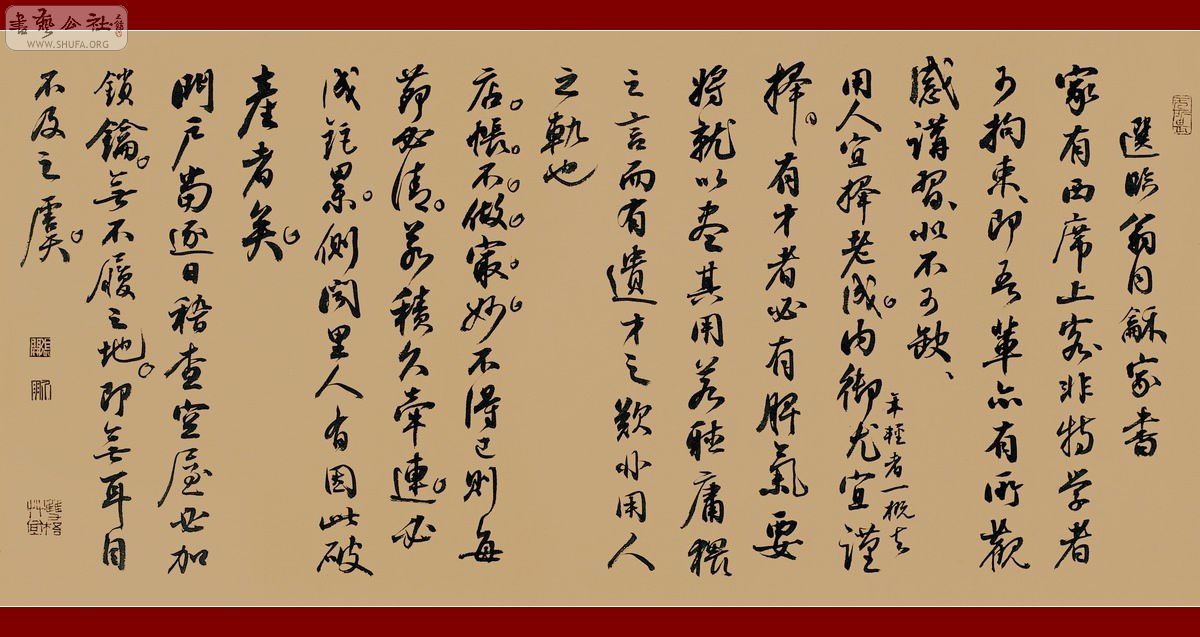 書藝公社
WWW.SHUFA.ORG
選眡翁同龢家書
家有西席上客非特学者
可拘束、即吾輩亦有所觀
感講習、似不可缺、
用人宜擇老成。内御尤宜謹
年輕者一概去
擇。有才者必有脾氣要
將就以尽其用若聽庸猥
之言而有遺才之歎非用人
之軌也
店。帳。不。做。最。妙。不得已則每
節必清。若積久牽連。必
成訟累。側聞里人有因此破
產者矣。
門戶當逐日稽查空屋必加
鎖鑰。無不履之地。即無耳目
不及之虞。